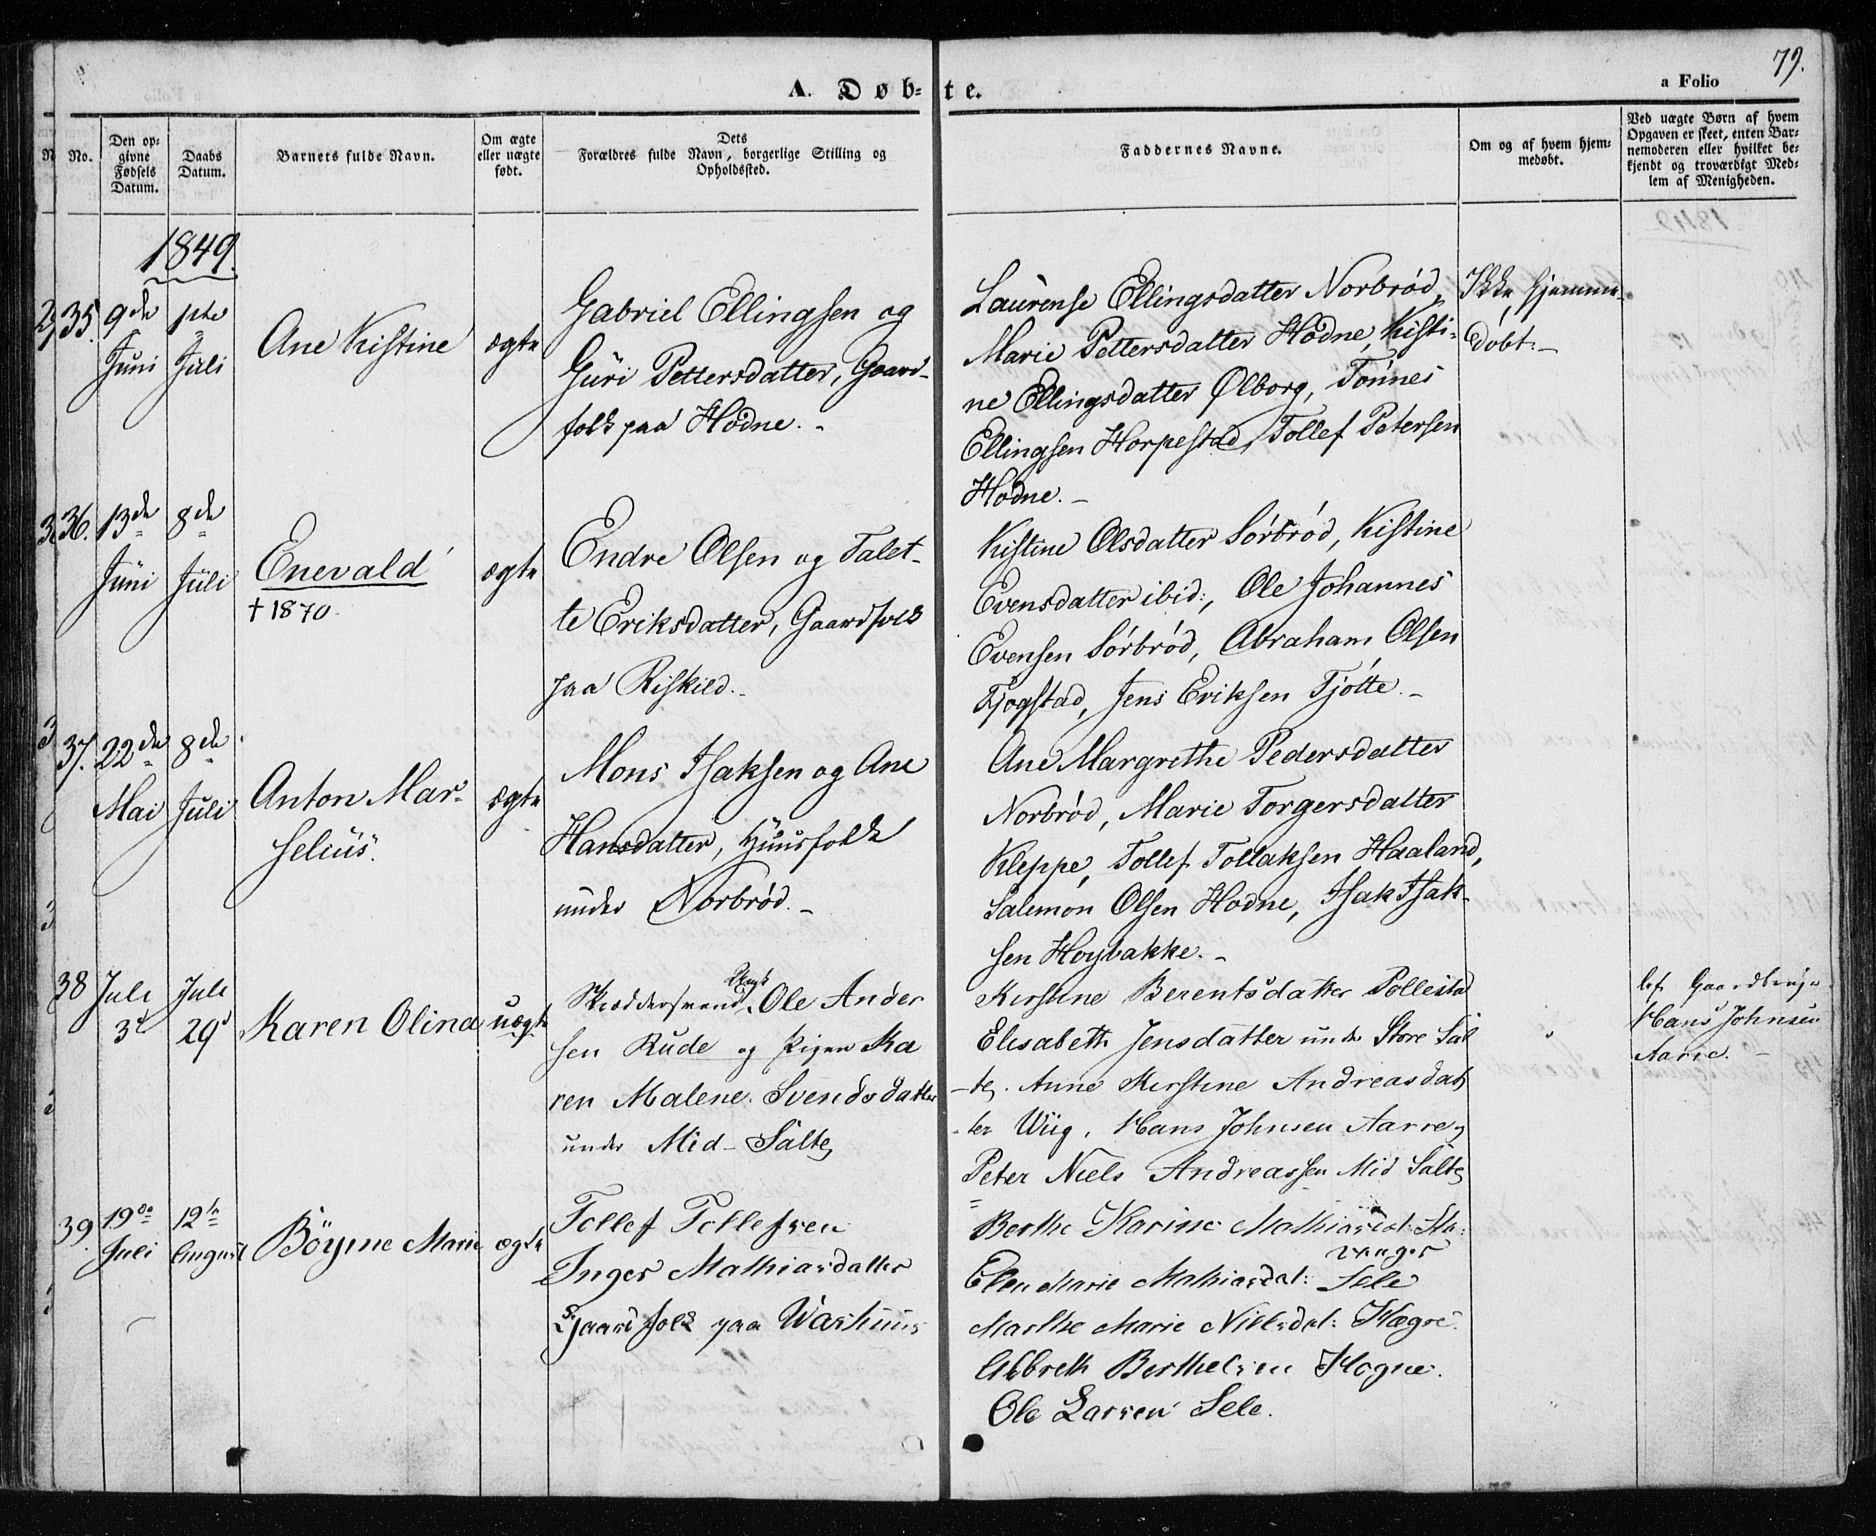 79.
A. Døb-te.
a Folio
No.
Den op-
givne
Fødsels
Datum.
Daabs
Datum.
Barnets fulde Navn.
Om ægte
eller uægte
født.
Dets
Forældres fulde Navn, borgerlige Stilling og
Opholdssted.
Faddernes Navne.
Om og af hvem hjem-
medøbt.
Ved uægte Børn af hvem
Opgaven er skeet, enten Bar-
nemoderen eller hvilket be-
kjendt og troværdigt Med-
lem af Menigheden.
1849.
35.
9de
Juni
1ste
Juli
Ane Kistine
ægte
Gabriel Ellingsen og
Guri Pettersdatter, Gaard-
folk paa Hodne.
Laurense Ellingsdatter Norbrød,
Marie Pettersdatter Hodne, Kisti-
ne Ellingsdatter Ølborg, Tønnes
Ellingsen Horpestad, Tollef Petersen
Hodne.
Ikke hjemme-
døbt.
36.
13de
Juni
8de
Juli
Enevald
† 1870.
ægte
Endre Olsen og Talet-
te Eriksdatter, Gaardfolk
paa Riskild.
Kistine Olsdatter Sørbrød, Kistine
Evensdatter ibid:, Ole Johannes
Evensen Sørbrød, Abraham Olsen
Fjogstad, Jens Eriksen Tjøtte.
37.
22de
Mai
8de
Juli
Anton Mar-
selius.
ægte
Mons Isaksen og Ane
Hansdatter, Huusfolk
under Norbrød.
Ane Margrethe Pedersdatter
Norbrød, Marie Torgersdatter
Kleppe, Tollef Tollaksen Haaland,
Salemon Olsen Hodne, Isak Isak-
sen Hoybakke.
38
Juli
3d
Juli
29d
Karen Olina
uægte
Skræddersvend Ungk. Ole Ander
sen Rude og Pigen Ka
ren Malene Svendsdatter
under Mid-Salte,
Kerstine Berentsdatter Pollestad
Elisabeth Jensdatter under Store Sal
-te, Anne Kerstine Andreasdat
-ter Wiig, Hans Johnsen Aarre,
Peter Niels Andreassen Mid Salte,
Gaardbruger
Hans Johnsen
Aarre.
39.
19de
Juli
12te
August
Böyine Marie
ægte
Tollef Tollefsen
Inger Mathiasdatter
Gaardfolk paa Washuus
Berthe Karine Mathiasdat: Sta-
vanger
Elen Marie Mathiasdat: Sele
Marthe Marie Nielsdat: Hægre.
Albreth Berthelsen Hogne.
Ole Larsen Sele.